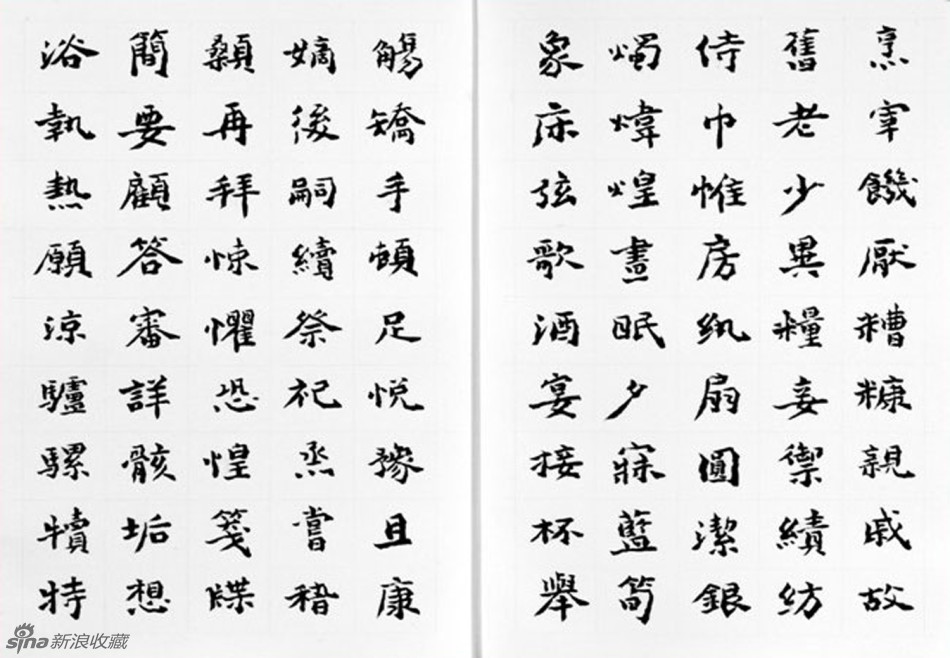 烹宰饑厭糟糠親戚故
舊老少異糧妾禦績紡
侍巾帷房紈扇圓潔銀
燭煒煌晝眠夕寐藍筍
象床弦歌酒宴接杯舉
觴矯手頓足悅豫且康
嫡後嗣續祭祀烝嘗稽
顙再拜悚懼恐惶箋牒
簡要顧答審詳骸垢想
浴執熱願涼驢騾犢特
sina新浪收藏